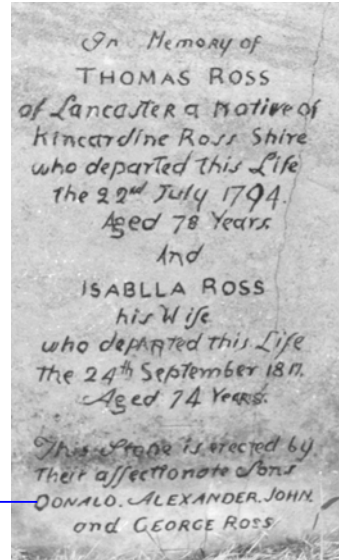 In Memory of
THOMAS ROSS
of Lancaster a Native of
Kincardine Ross Shire
who departed this Life
the 22nd July 1794.
Aged 78 Years.
And
ISABLLA ROSS
his Wife
who departed this Life
the 24th September 1811.
Aged 74 Years.
This Stone is erected by
Their affectionate Sons
DONALD. ALEXANDER. JOHN.
and GEORGE ROSS